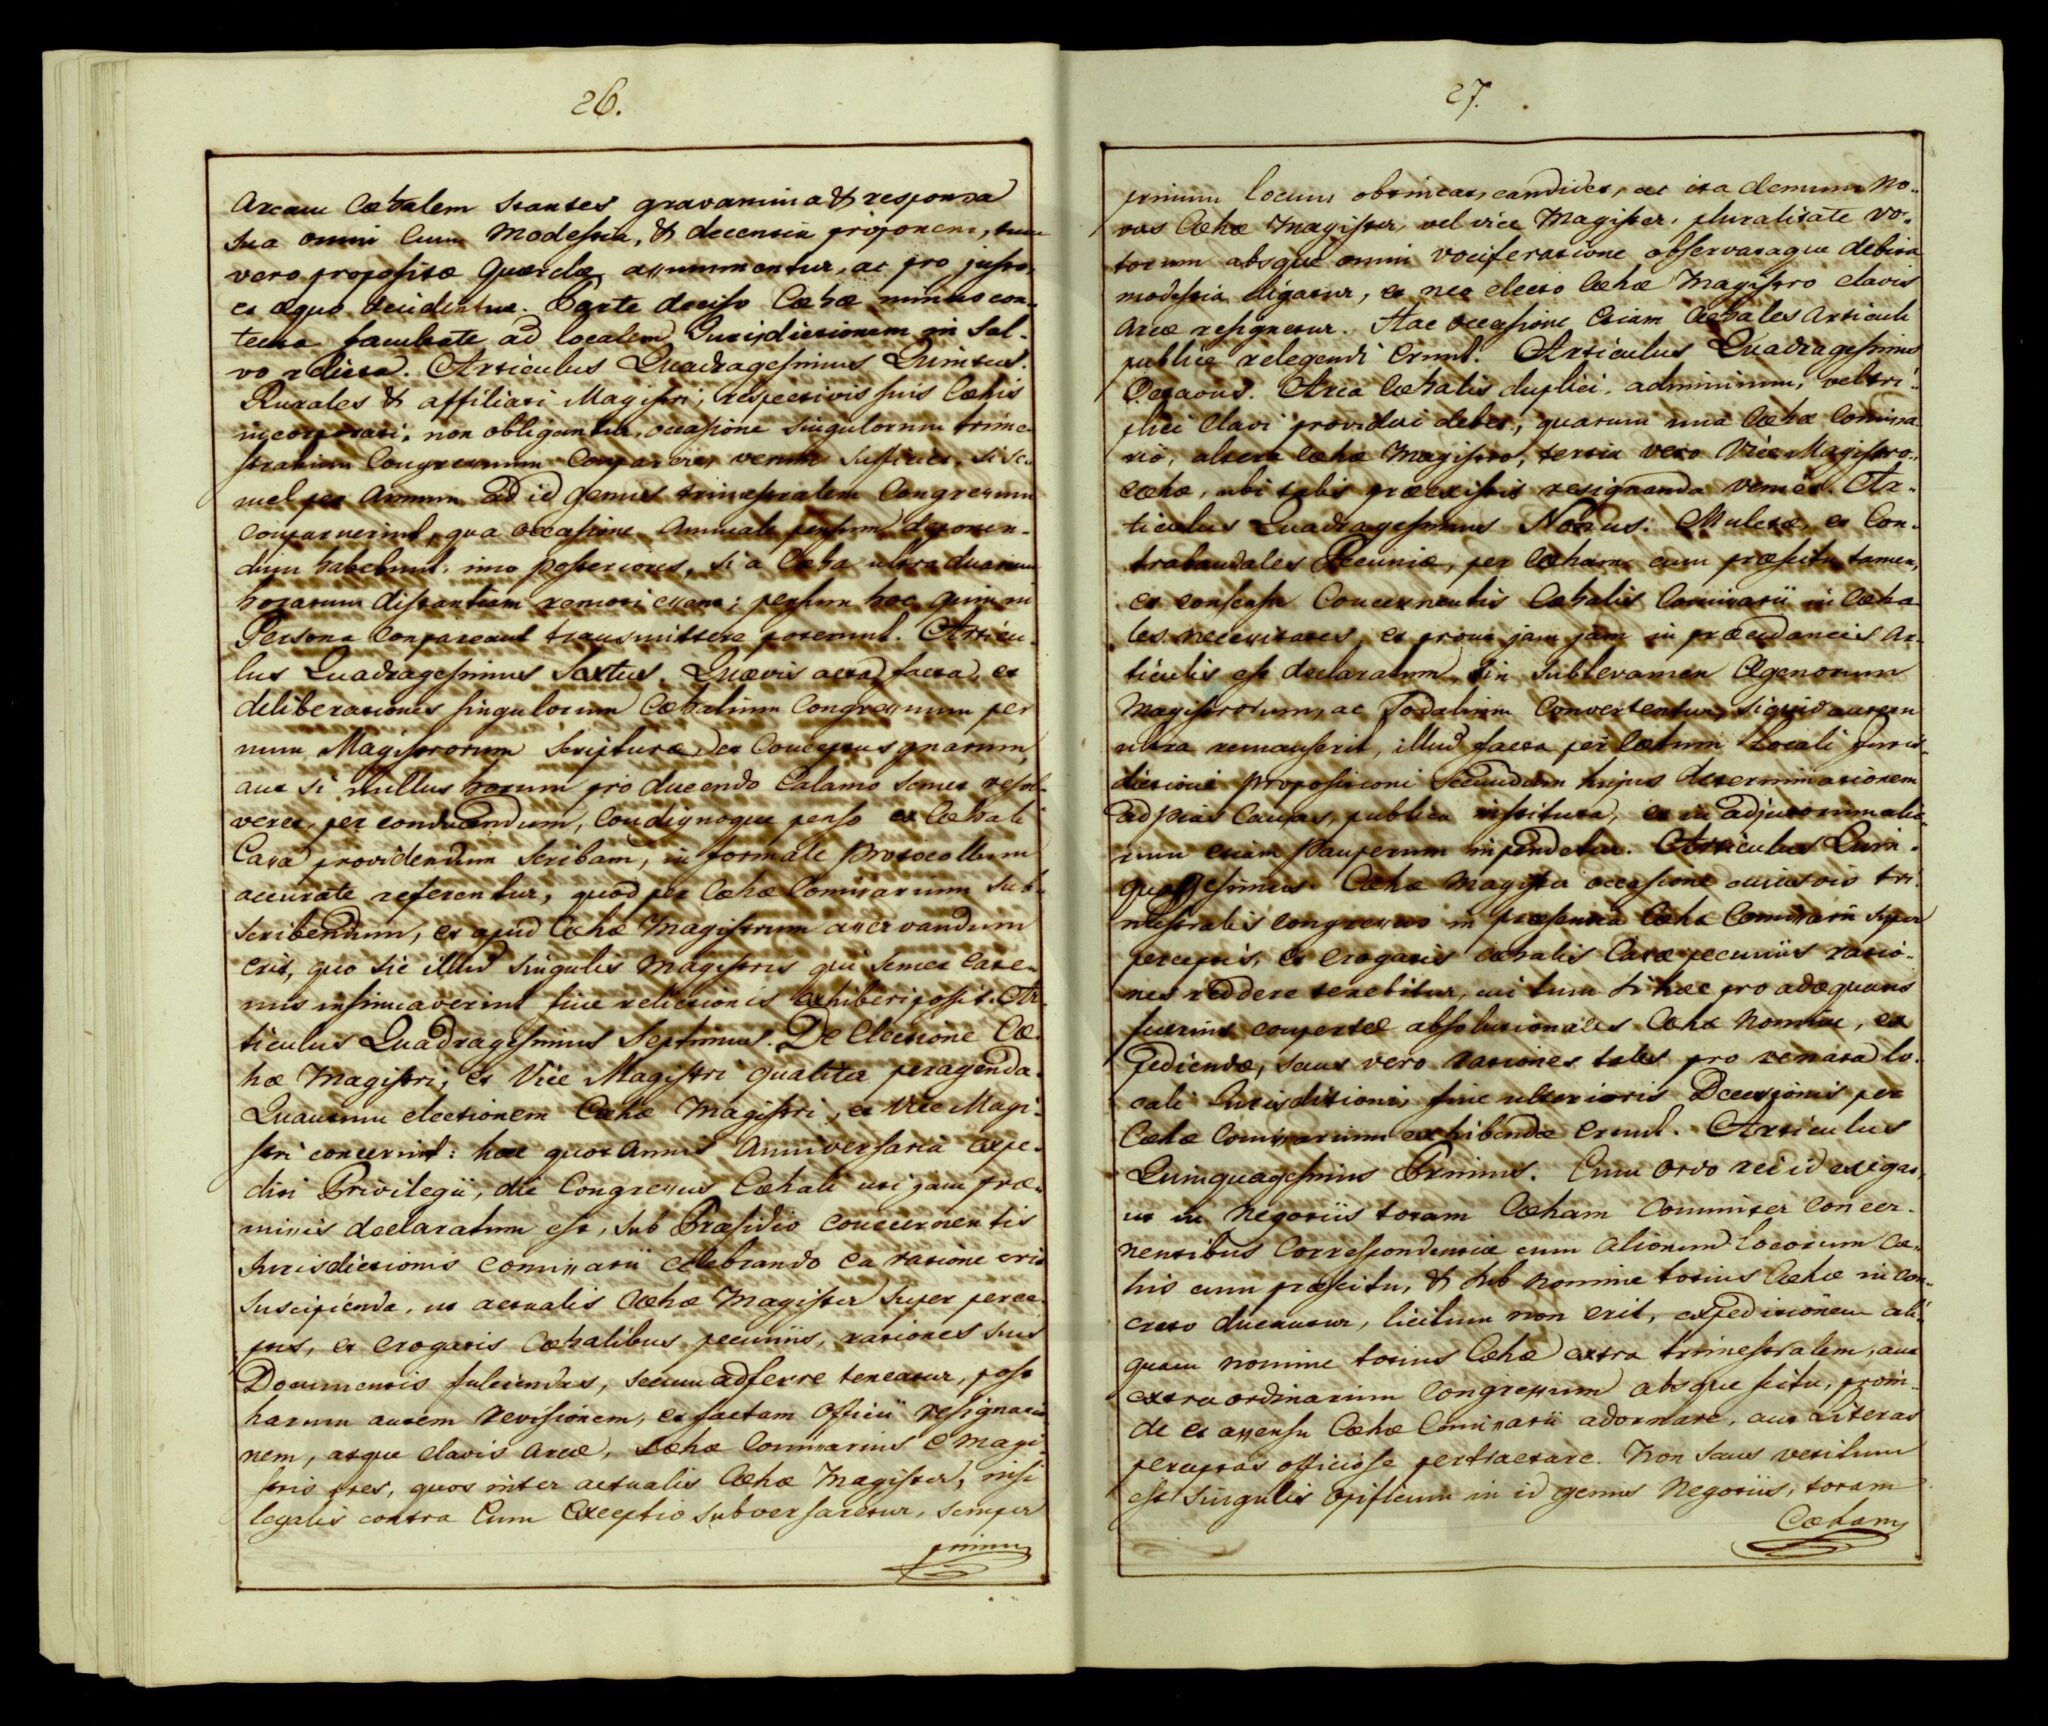 26.
Arcam Caehalem stantes gravamina & responsa
sua omni cum modestia, & decentia proponent, tum
vero propositae Querelae assummentur, ac pro justo,
et aequo decidentur. Parte deciso Caehae minus con-
tenta facultate ad localem Jurisdictionem in sal-
vo relicta. Articulus Quadragesimus Quintus.
Rurales & affiliati Magistri, respectivis suis Caehis
incorporati, non obligantur, occasione singulorum trime-
stralium Congressuum comparere, verum sufficiet, si se-
mel per Annum ad id genus trimestralem Congressum
comparuerint, qua occasione Annuale pensum deponen-
dum habebunt, imo posteriores, si a Caeha ultra duarum
horarum distantiam remoti essent; pensum hoc quin in
Persona compareant transmittere poterunt. Articu-
lus Quadragesimus Sextus. Quaevis acta, facta, et
deliberationes singulorum Caehalium Congressuum per
unum Magistrorum Scripturae, et Conceptus gnarum,
aut si nullus horum pro ducendo Calamo semet resol-
veret, per conducendum, condignoque penso ex Caehali
Cassa providendum Scribam, in formale Protocollum
accurate referentur, quod per Caehae Comissarium sub-
scribendum, et apud Caehae Magistrum asservandum
erit, quo sic illud singulis Magistris qui semet eate-
nus insinuaverint sine relictionis exhiberi possit. Ar-
ticulus Quadragesimus Septimus. De Electione Cae-
hae Magistri, et Vice Magistri qualiter peragenda.
Quantum electionem Caehae Magistri, et Vice Magi-
stri concernit: haec quot Annis Anniversaria expe-
diti Privilegii, die Congressus Caehali uti jam prae-
missis declaratum est, sub Praesidio concernentis
Jurisdictionis comissarii celebrando ea ratione erit
suscipienda, ut actualis Caehae Magister super perce-
ptis, et erogatis Caehalibus pecuniis, rationes suis
Documentis fulciendas, secum adferre teneatur, post
harum autem revisionem, et factam Officii resignatio-
nem, atque clavis arcae, Caehae Comissarius e Magi-
stris tres, quos inter actualis Caehae Magister, nisi
legalis contra Eum Exceptio subversaretur, semper
primum
27.
primum locum obtineat, candidet, ac ita demum No-
vus Caehae Magister, vel vice Magister, pluralitate vo-
torum absque omni vociferatione observataque debita
modestia eligatur, et neo electo Caehae Magistro clavis
arcae resignetur. Hac occasione etiam Caehales Articuli
publice relegendi erunt. Articulus Quadragesimus
Octavus. Arca Caehalis duplici, adminimum, vel tri-
plici clavi provideri debet, quarum una Caehae Comissa-
rio, altera Caehae Magistro, tertia vero Vice Magistro,
Caehae, ubi talis praeexistit resignanda veniet. Ar-
ticulus Quadragesimus Nonus. Mulctae, et Con-
trabandales Pecuniae, per Caeham cum praescitu tamen,
et consensu concernentis Caehalis Comissarii in Caeha-
les necessitates, et prout jam jam in praecedaneis Ar-
ticulis est declaratum, in sublevamen Egenorum
Magistrorum, ac Sodalium convertentur, si quid autem
ultra remanserit, illud facta per Caetum Locali Juris-
dictioni propositioni secundum hujus determinationem
ad pias Causas, publica instituta, et in adjutorium alio-
rum etiam Pauperum impendetur. Articulus Quin-
quagesimus. Caehae Magister occasione cujusvis tri-
mestralis congressus in praesentia Caehae Comissarii super
perceptis, et erogatis caehalis Cassae pecuniis ratio-
nes reddere tenebitur, cui tum si hae pro adaequatis
fuerint compertae absolutionales Caehae Nomine, ex
pediendae, secus vero rationes tales pro remata lo-
cali Jurisdictioni, sine ulterioris Decisionis per
Caehae Comissarium exhibendae erunt. Articulus
Quinquagesimus Primus. Cum ordo rei id exigat,
ut in Negotiis totam Caeham communiter concer-
nentibus Correspondentiae cum aliorum Locorum Cae-
his cum praescitu, & sub Nomine totius Caehae in con-
creto ducantur, licitum non erit, expeditionem ali-
quam nomine totius Caehae extra trimestralem, aut
extraordinarium Congressum absque scitu, proin-
de et assensu Caehae Comissarii adornare, aut Literas
perceptas officiose pertractare. Non secus vetitum
est singulis Opificum in id genus Negotiis, totam
Caeham